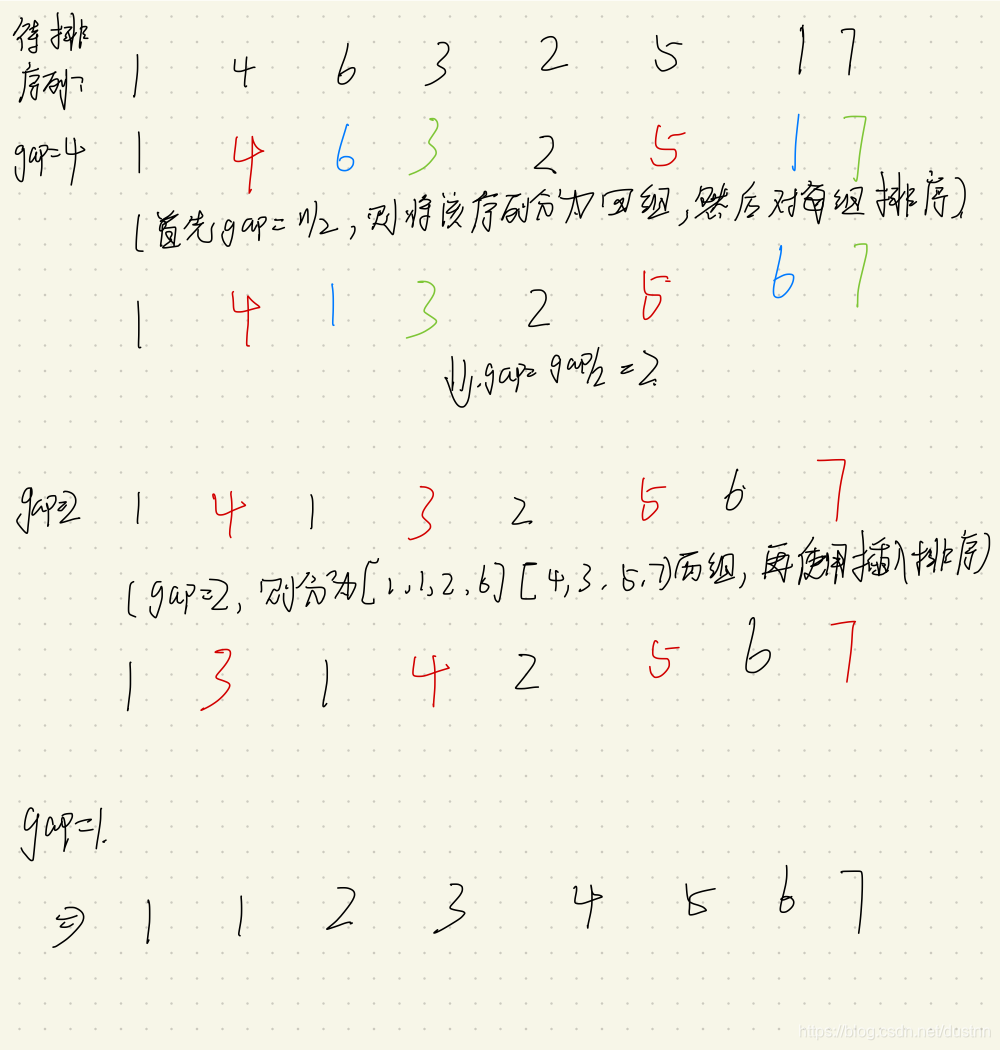 待排
序列: 1 4 6 3 2 5 1 7
gap=4 1 4 6 3 2 5 1 7
(首先gap=n/2,则将该序列分为四组,然后对每组排序)
1 4 1 3 2 5 6 7
↓.gap=gap/2=2.
gap=2 1 4 1 3 2 5 6 7
(gap=2,则分为[1,1,2,6][4,3,5,7)两组,再使用插入排序)
1 3 1 4 2 5 6 7
gap=1.
⇒ 1 1 2 3 4 5 6 7
https://blog.csdn.net/dustnn